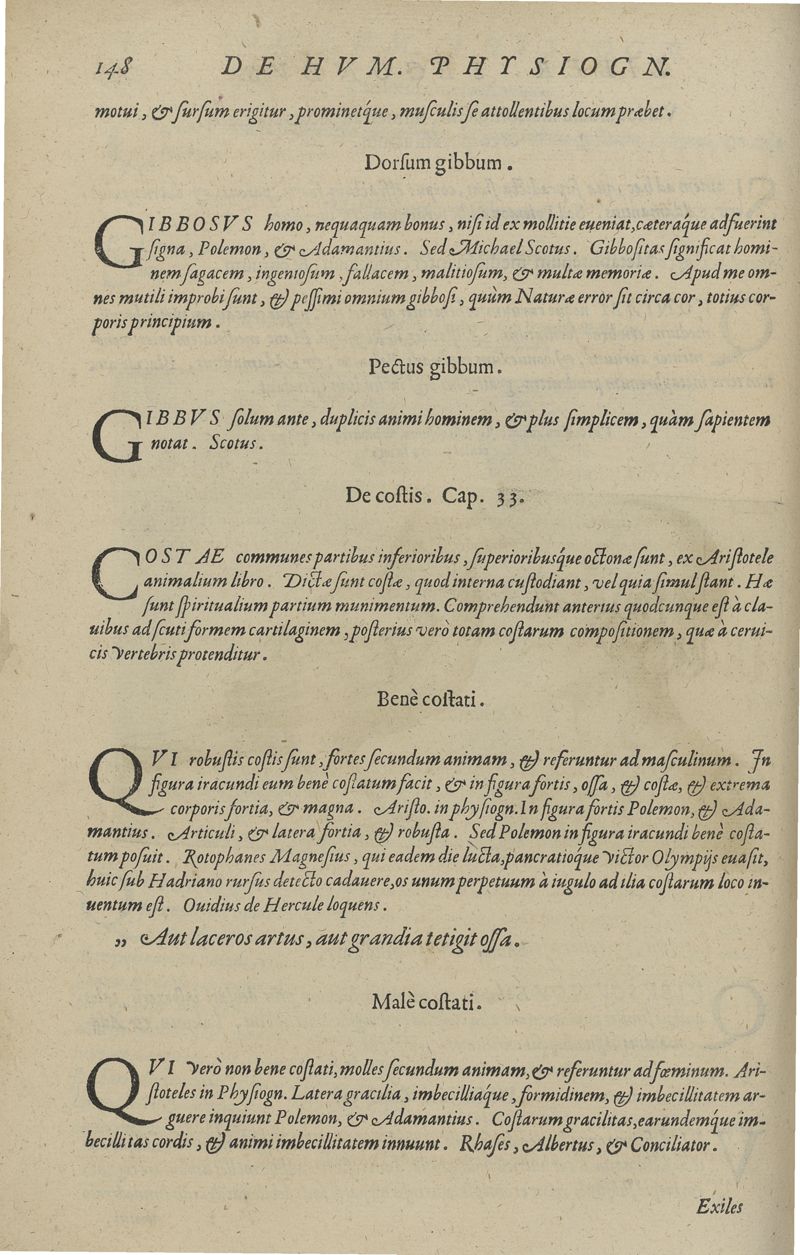 148 DE HVM. PHYSIOGN.
motui, & ſurſum erigitur, prominetq́ue, muſculis ſe attollentibus locum præbet.
Dorſum gibbum.
GIBBOSVS homo, nequaquam bonus, niſi id ex mollitie eueniat, cæteraq́ue adfuerint
ſigna, Polemon, & Adamantius. Sed Michael Scotus. Gibboſitas ſignificat homi-
nem ſagacem, ingenioſum, fallacem, malitioſum, & multæ memoriæ. Apud me om-
nes mutili improbi ſunt, & peſſimi omnium gibboſi, quùm Naturæ error ſit circa cor, totius cor-
poris principium.
Pectus gibbum.
GIBBVS ſolum ante, duplicis animi hominem, & plus ſimplicem, quàm ſapientem
notat. Scotus.
De coſtis. Cap. 33.
COSTAE communes partibus inferioribus, ſuperioribusq́ue octonæ ſunt, ex Ariſtotele
animalium libro. Dictæ ſunt coſtæ, quod interna cuſtodiant, vel quia ſimul ſtant. Hæ
ſunt ſpiritualium partium munimentum. Comprehendunt anterius quodcunque eſt à cla-
uibus ad ſcutiformem cartilaginem, poſterius verò totam coſtarum compoſitionem, quæ à cerui-
cis vertebris protenditur.
Benè coſtati.
QVI robuſtis coſtis ſunt, fortes ſecundum animam, & referuntur ad maſculinum. In
figura iracundi eum benè coſtatum facit, & in figura fortis, oſſa, & coſtæ, & extrema
corporis fortia, & magna. Ariſto. in phyſiogn. In figura fortis Polemon, & Ada-
mantius. Articuli, & latera fortia, & robuſta. Sed Polemon in figura iracundi benè coſta-
tum poſuit. Rotophanes Magneſius, qui eadem die lucta, pancratioq́ue victor Olympijs euaſit,
huic ſub Hadriano rurſus detecto cadauere, os unum perpetuum à iugulo ad ilia coſtarum loco in-
uentum eſt. Ouidius de Hercule loquens.
„ Aut laceros artus, aut grandia tetigit oſſa.
Malè coſtati.
QVI verò non bene coſtati, molles ſecundum animam, & referuntur ad fœminum. Ari-
ſtoteles in Phyſiogn. Latera gracilia, imbecilliaq́ue, formidinem, & imbecillitatem ar-
guere inquiunt Polemon, & Adamantius. Coſtarum gracilitas, earundemq́ue im-
becillitas cordis, & animi imbecillitatem innuunt. Rhaſes, Albertus, & Conciliator.
Exiles